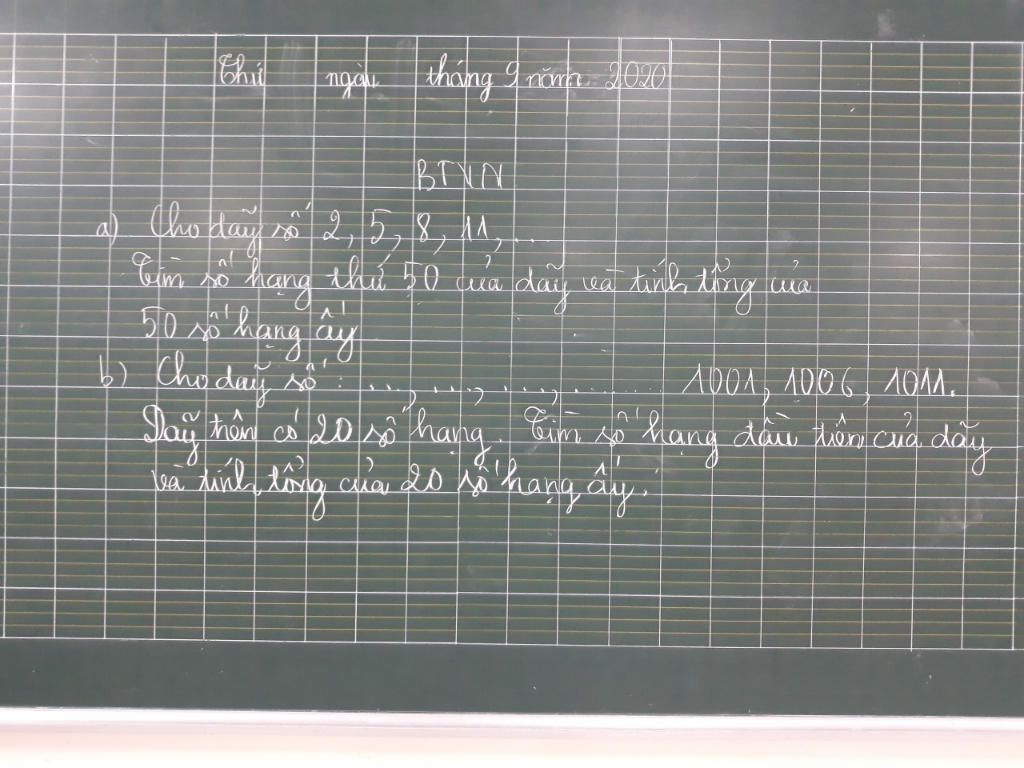 Thứ ngày tháng 9 năm 2020
BTVN
a) Cho dãy số 2, 5, 8, 11, ...
Tìm số hạng thứ 50 của dãy và tính tổng của
50 số hạng ấy
b) Cho dãy số : ..., ..., ..., ......... 1001, 1006, 1011.
Dãy trên có 20 số hạng. Tìm số hạng đầu tiên của dãy
và tính tổng của 20 số hạng ấy.